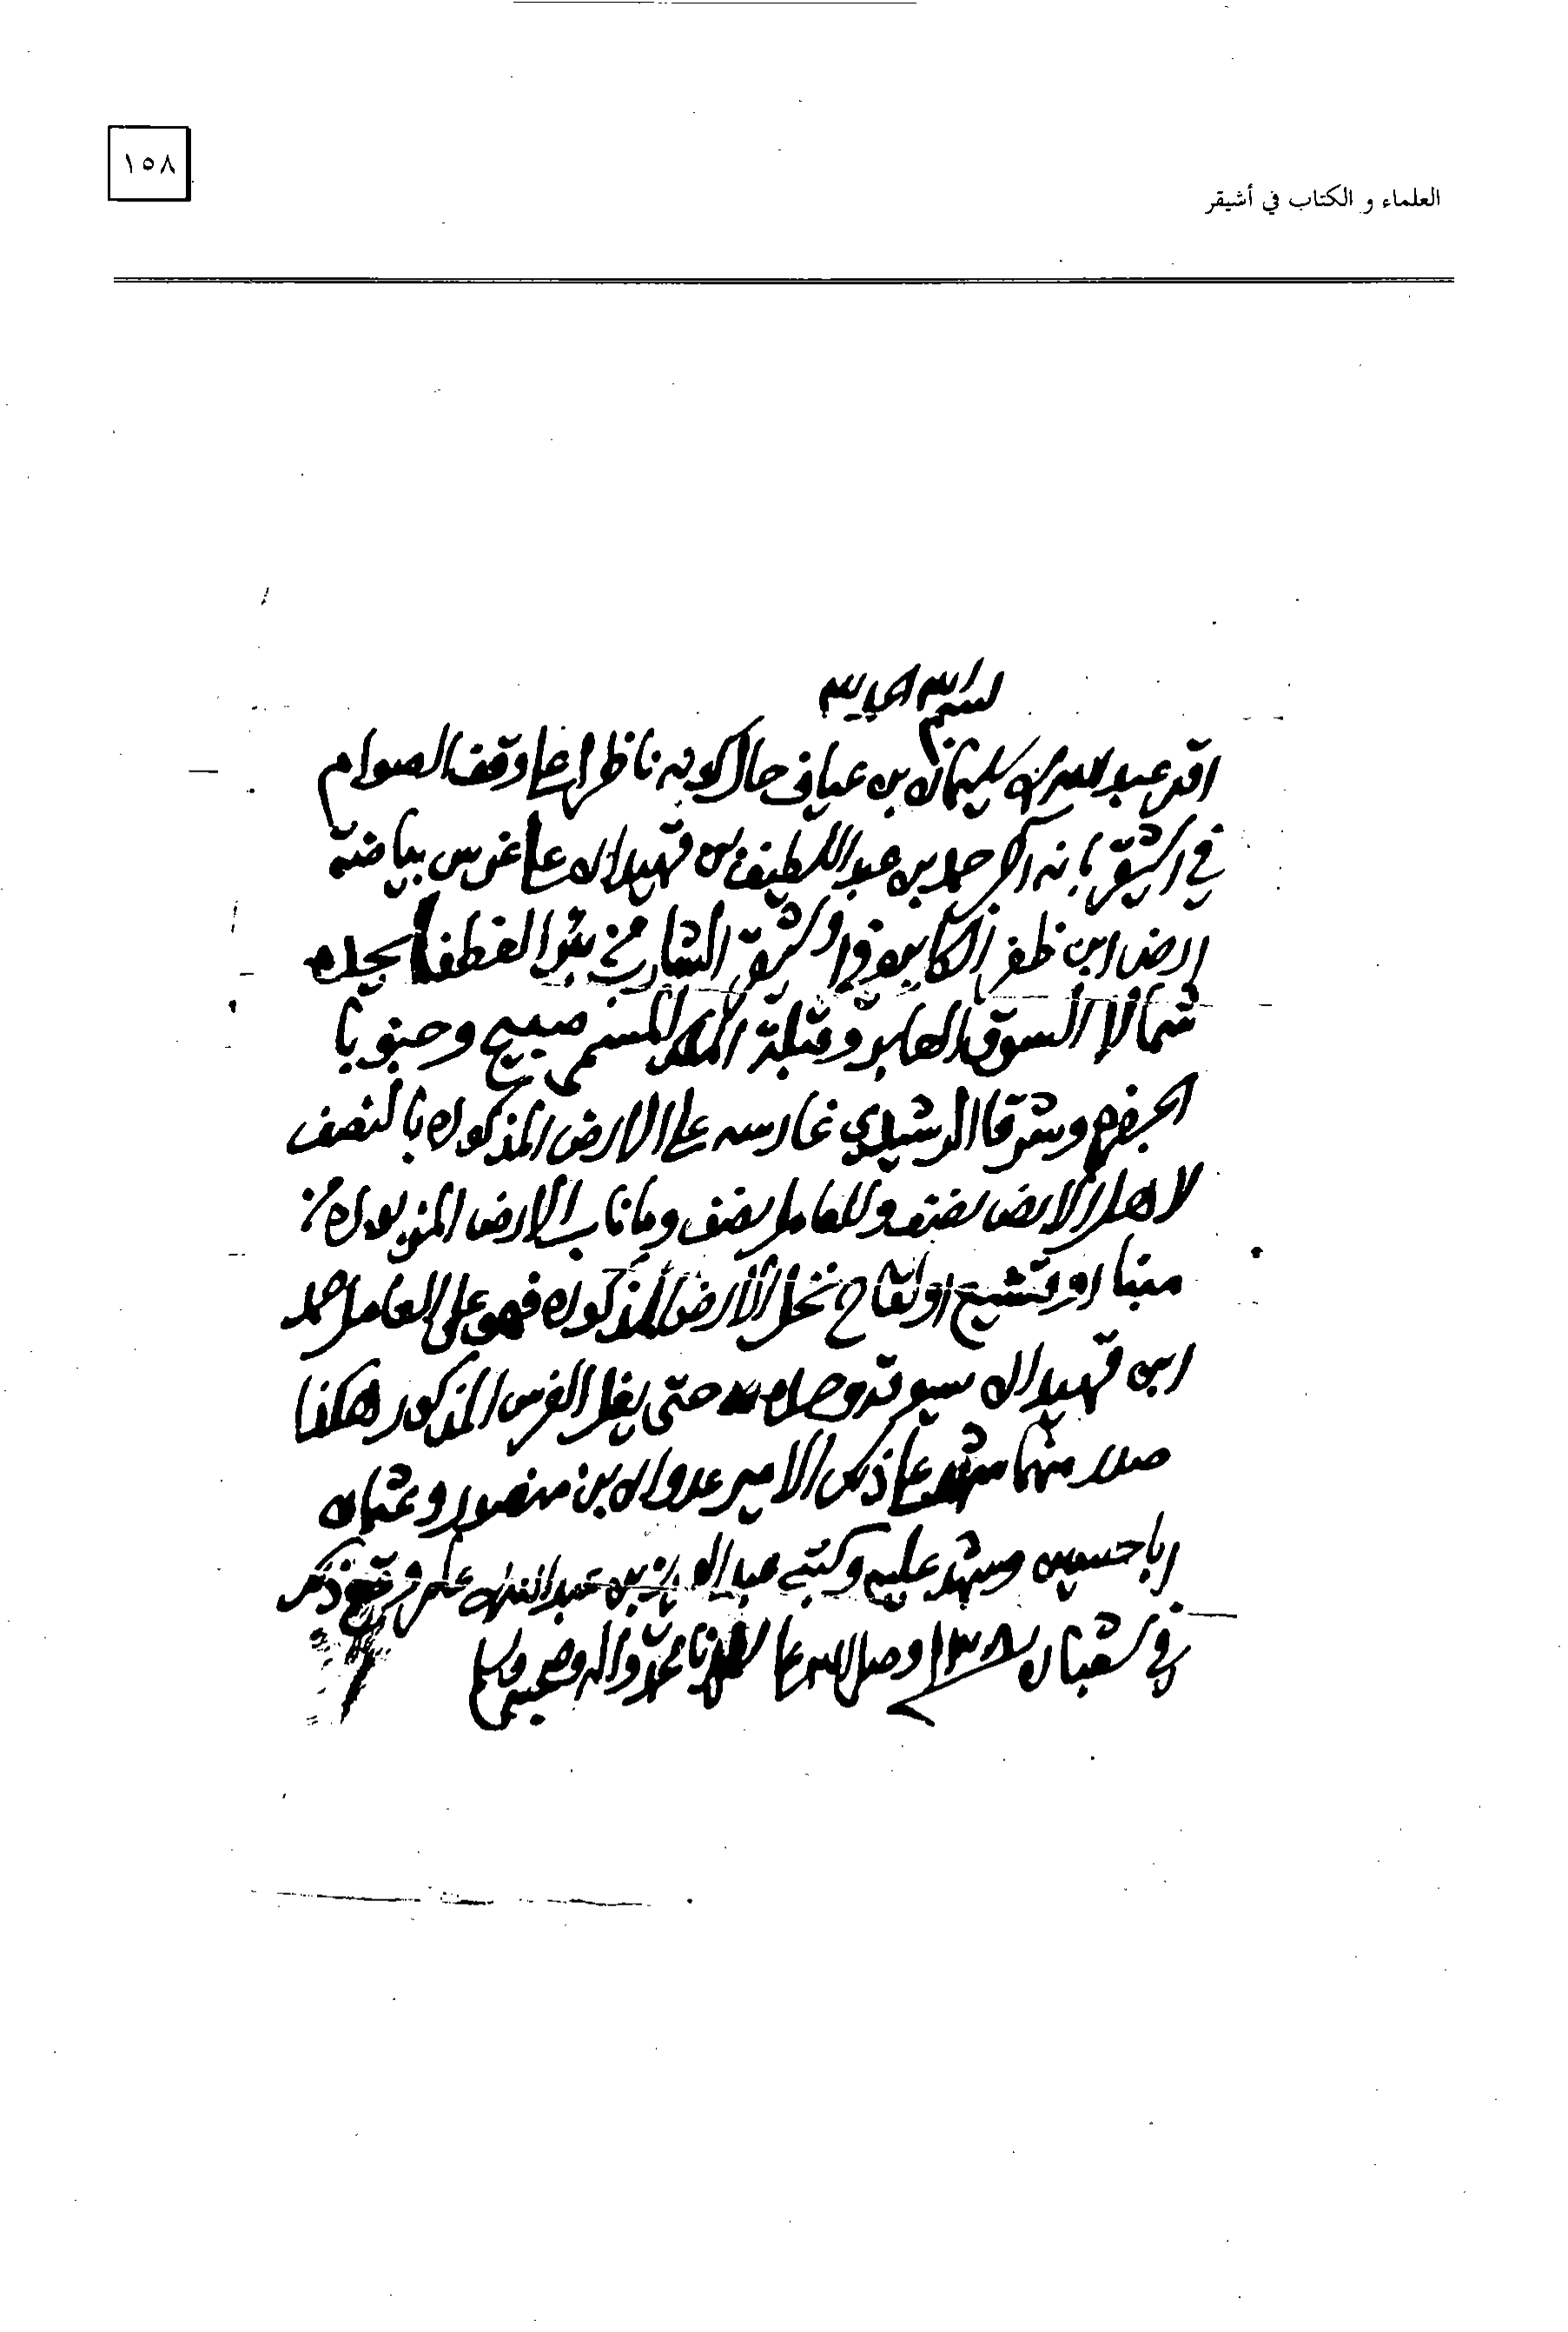 ١٥٨
العلماء و الكتاب في أشيقر
بسم الله
اقر عبدالله بن سليمان بن عياف حال كونه ناظرا على وقف الصوام
في اشيقر بانه آجر حمد بن عبداللطيف بن قهيدان على غرس بياضة
ارض ابن ظفر الكاينه في اشيقر الشارب من بئر الغطفا يحده
شمالا السوق العابر وقبلة الملك المسمى صبيح وجنوبا
الجفره وشرقا الرشيدي غارسه على الارض المذكوره بالنصف
لاهل الارض نصف وللعامل نصف وما ناب الارض المزبوره من
مبنا او تشييح او لقاح نخل الارض المذكوره فهو على العامل حمد
ابن قهيدان سيوقه وصلاه حتى يغل الغرس المذكور هكذا
صدر منهما شهد على ذكر الامير عدوان بن منصور وعثمان
ابا حسين وشهد عليه وكتبه عبدالعزيز بن عبدالله
في شعبان ١٣٠٨ وصلى الله على محمد وآله وصحبه وسلم